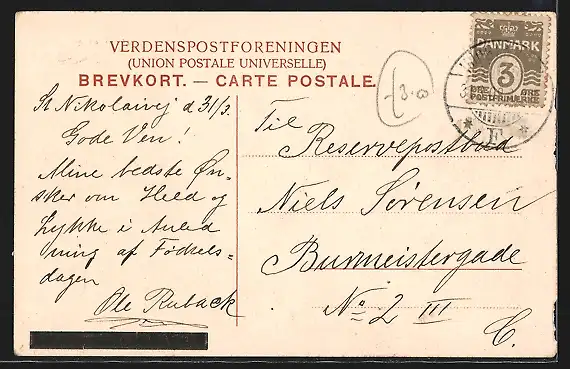 VERDENSPOSTFORENINGEN
(UNION POSTALE UNIVERSELLE)
BREVKORT. — CARTE POSTALE.
St Nikolaivej d 31/3.
Gode Ven!
Mine bedste Øn-
sker om Held og
Lykke i Anled
ning af Fødsels=
dagen
Ole Ruback
DANMARK
3
ØRE ØRE
POSTFRIMÆRKE
Til
Reservepostbud
Niels Sørensen
Burmeistergade
No 2 III
C.